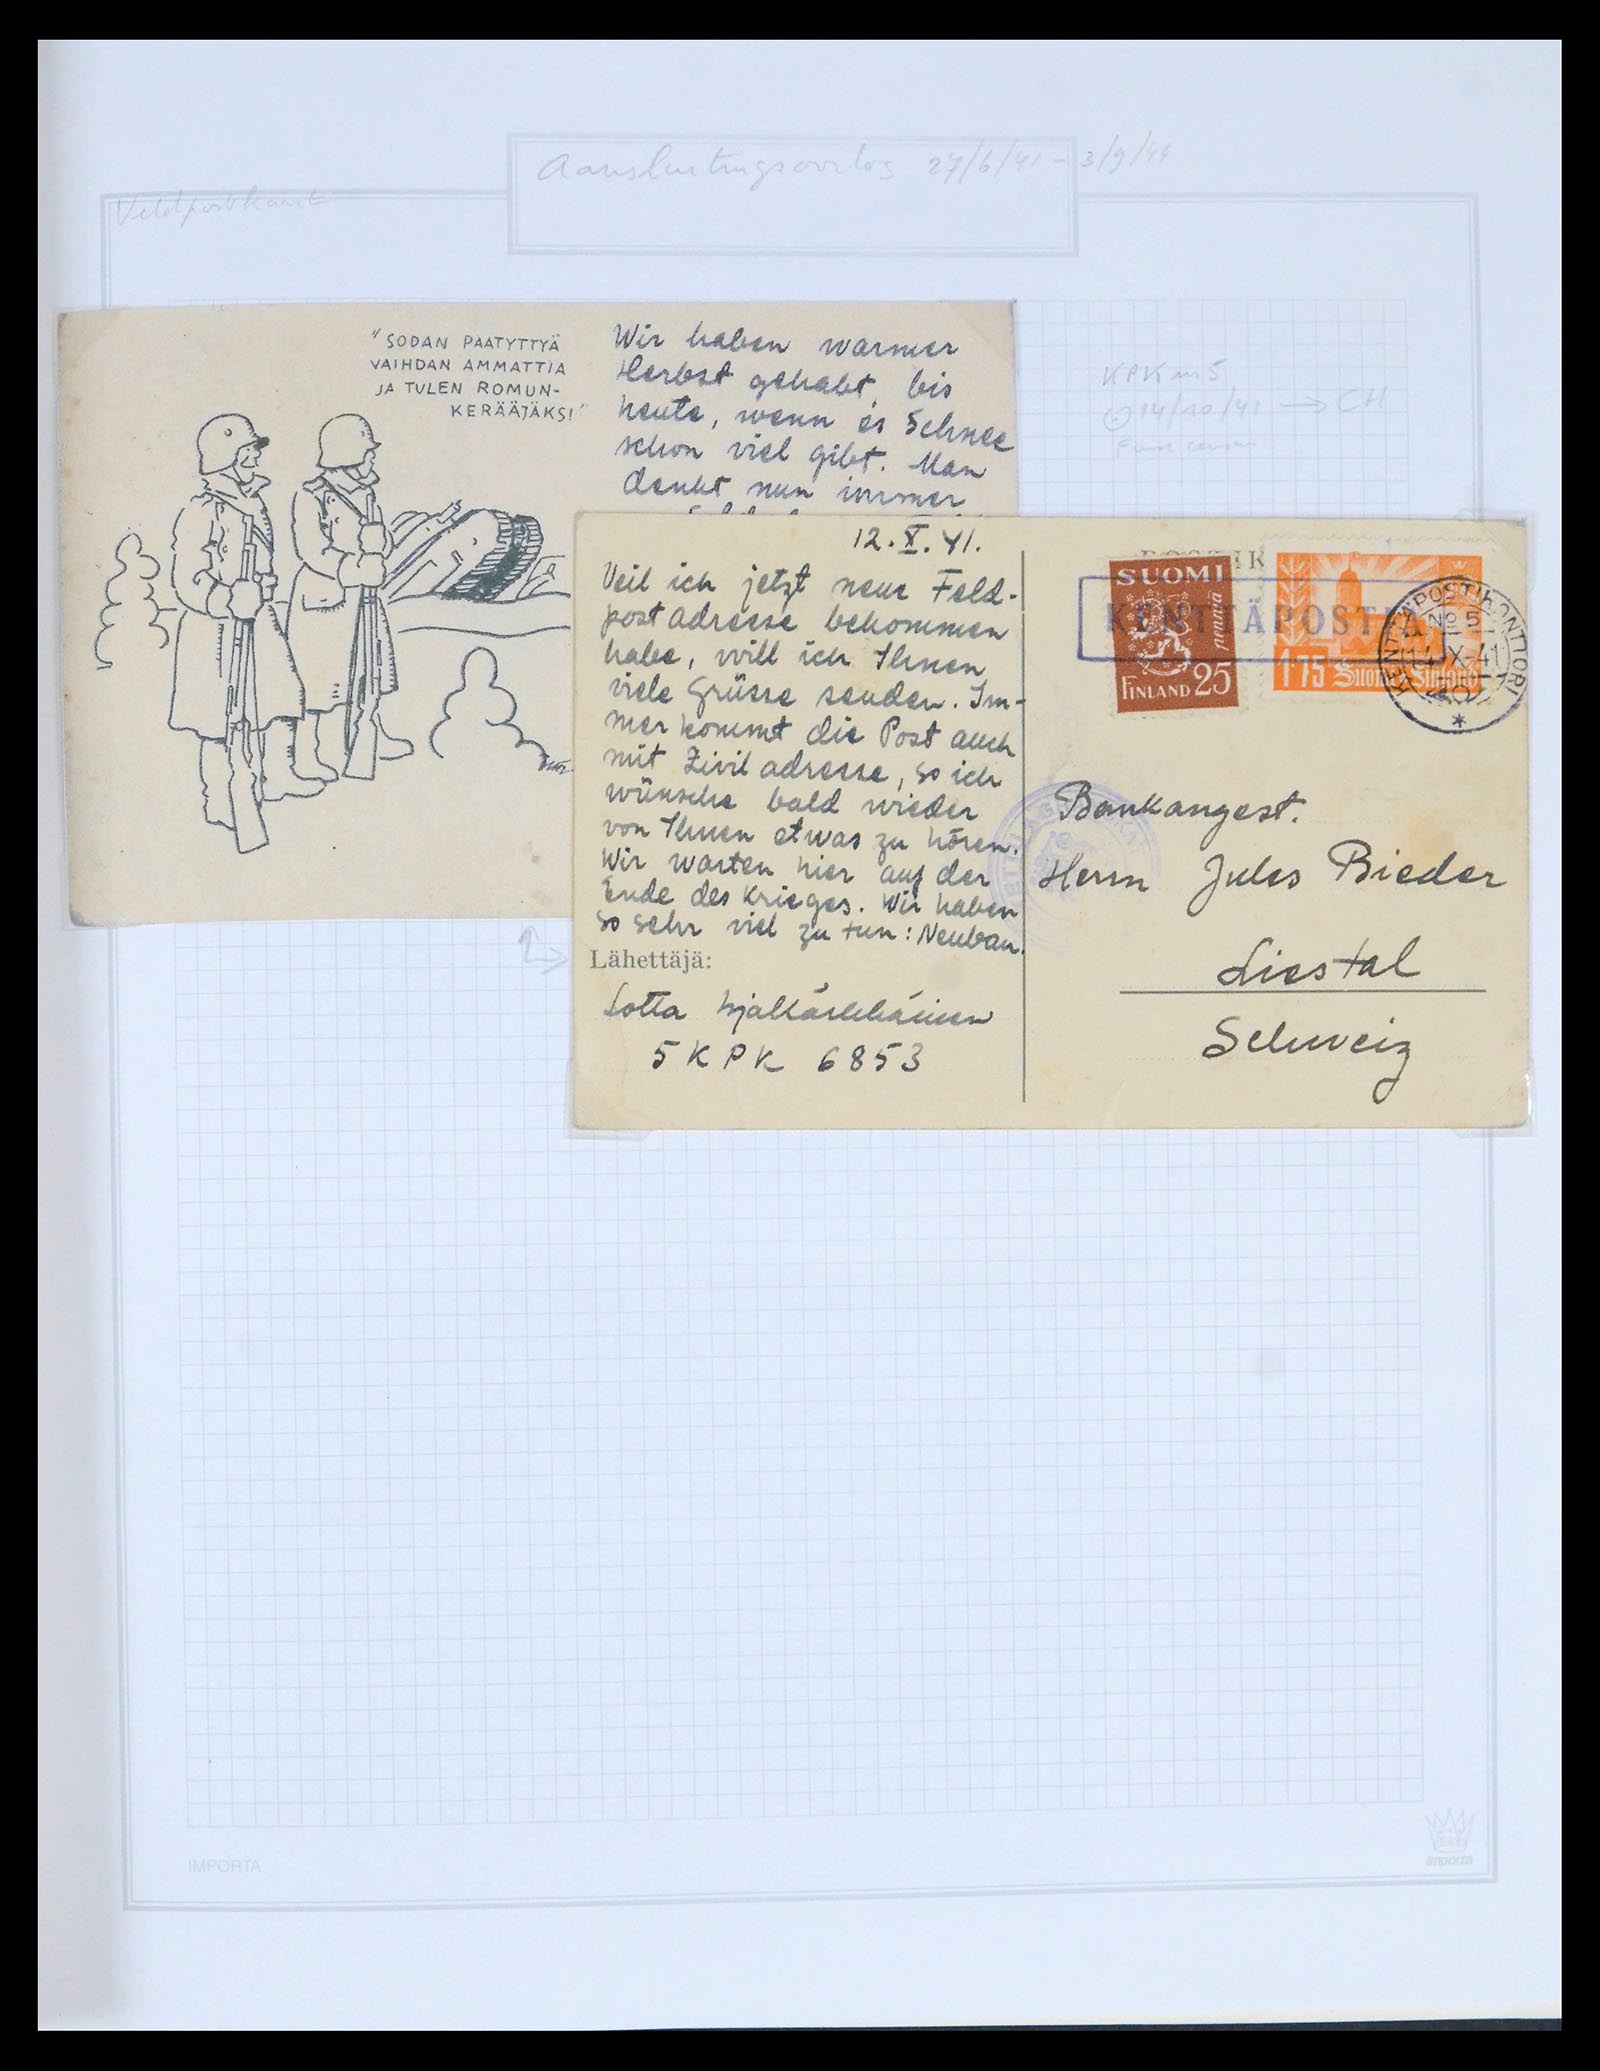 27/6/41 - 3/9/44
Veldpostkaart
"SODAN PÄÄTYTTYÄ
VAIHDAN AMMATTIA
JA TULEN ROMUN-
KERÄÄJÄKSI"
Wir haben warmer
Herbst gehabt, bis
heute, wenn es Schnee
schon viel gibt. Man
denkt nun immer
KPK nr 5
14/10/41 → CH
12.X.41.
Weil ich jetzt neue Feld-
postadresse bekommen
habe, will ich Ihnen
viele Grüsse senden. Im-
mer kommt die Post auch
mit Ziviladresse, so ich
wünsche bald wieder
von Ihnen etwas zu hören.
Wir warten hier auf der
Ende des Krieges. Wir haben
so sehr viel zu tun: Neubau.
Lähettäjä:
Lotta
5 KPK 6853
SUOMI
penniä
FINLAND 25
KENTTÄPOSTIA
175 Suomi Finland
KENTTÄPOSTIKONTTORI
No 5
14.X.41
Bankangest.
Herrn Jules Bieder
Liestal
Schweiz
IMPORTA
IMPORTA